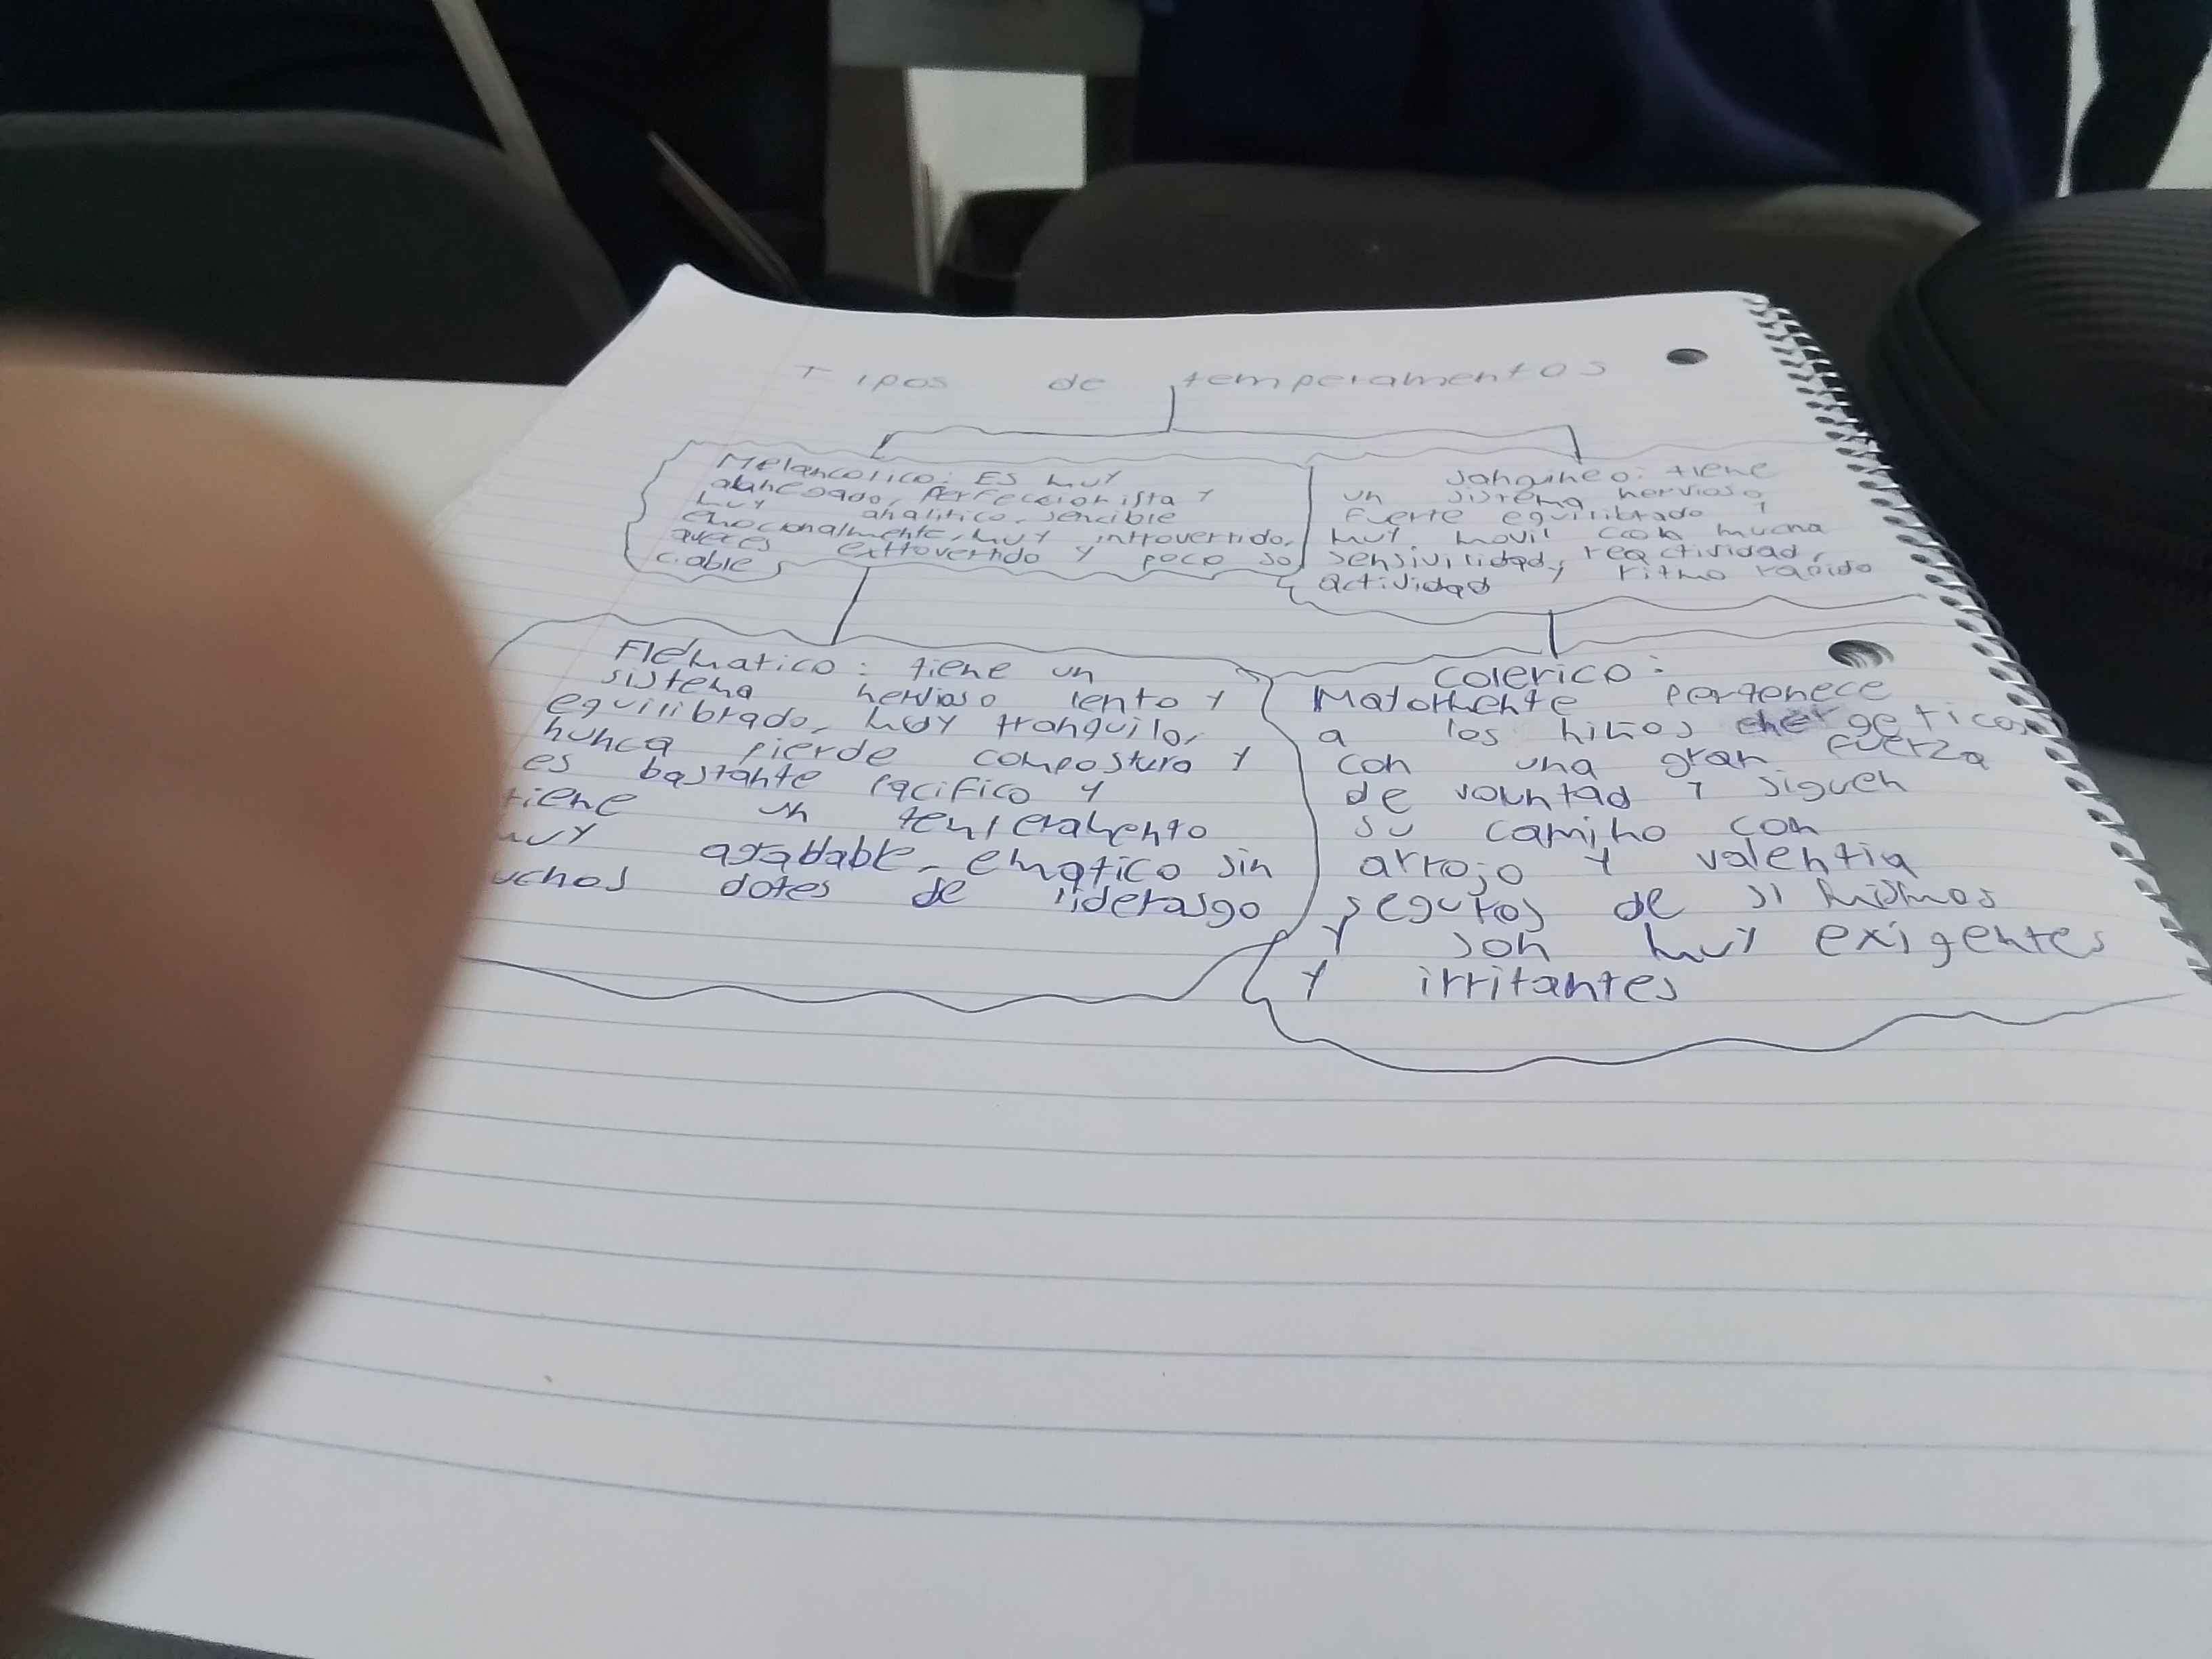 Tipos de temperamentos
Melancolico: Es muy
abnegado, perfeccionista y
muy analitico, sencible
emocionalmente, muy introvertido,
aveces extrovertido y poco so
ciable
sanguineo: tiene
un sistema nervioso
fuerte equilibrado y
muy movil con mucha
sensivilidad, reactividad,
actividad y ritmo rapido
Flematico: tiene un
sistema nervioso lento y
equilibrado, muy tranquilo,
nunca pierde compostura y
es bastante pacifico y
tiene un temperamento
muy agradable, ematico sin
uchos dotes de liderasgo
colerico:
Mayormente pertenece
a los niños energeticos
con una gran fuerza
de voluntad y siguen
su camino con
arrojo y valentia
seguros de si mismos
y son muy exigentes
y irritantes